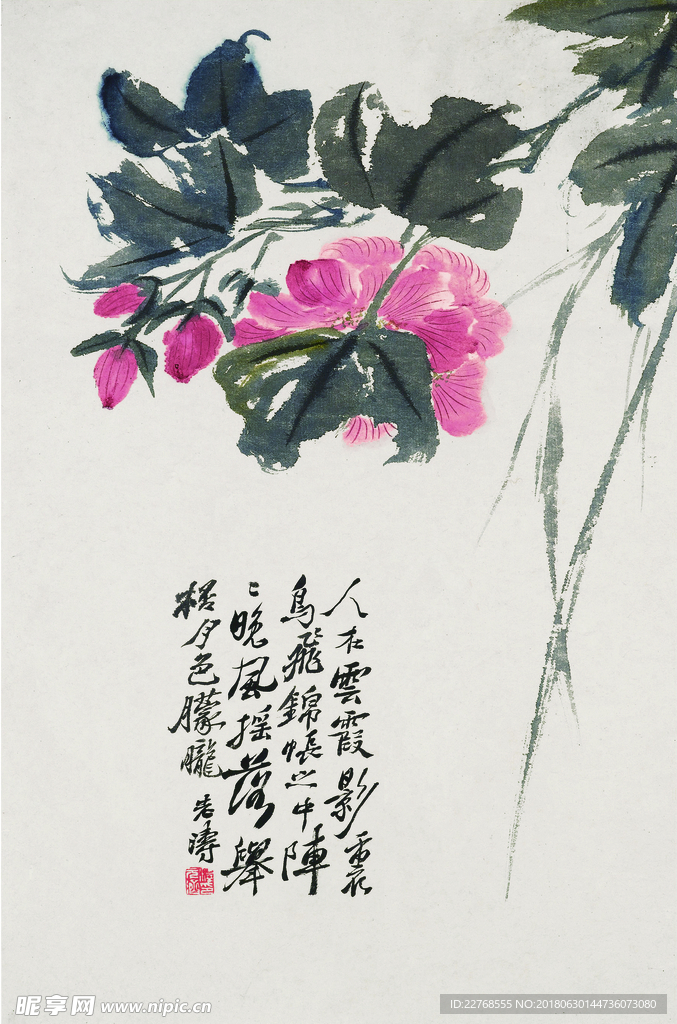 人在雲霞影裏
鳥飛錦帳之中陣
〻晚風搖落舉
榼夕色朦朧
老濤
昵享网 www.nipic.cn
ID:22768555 NO:20180630144736073080